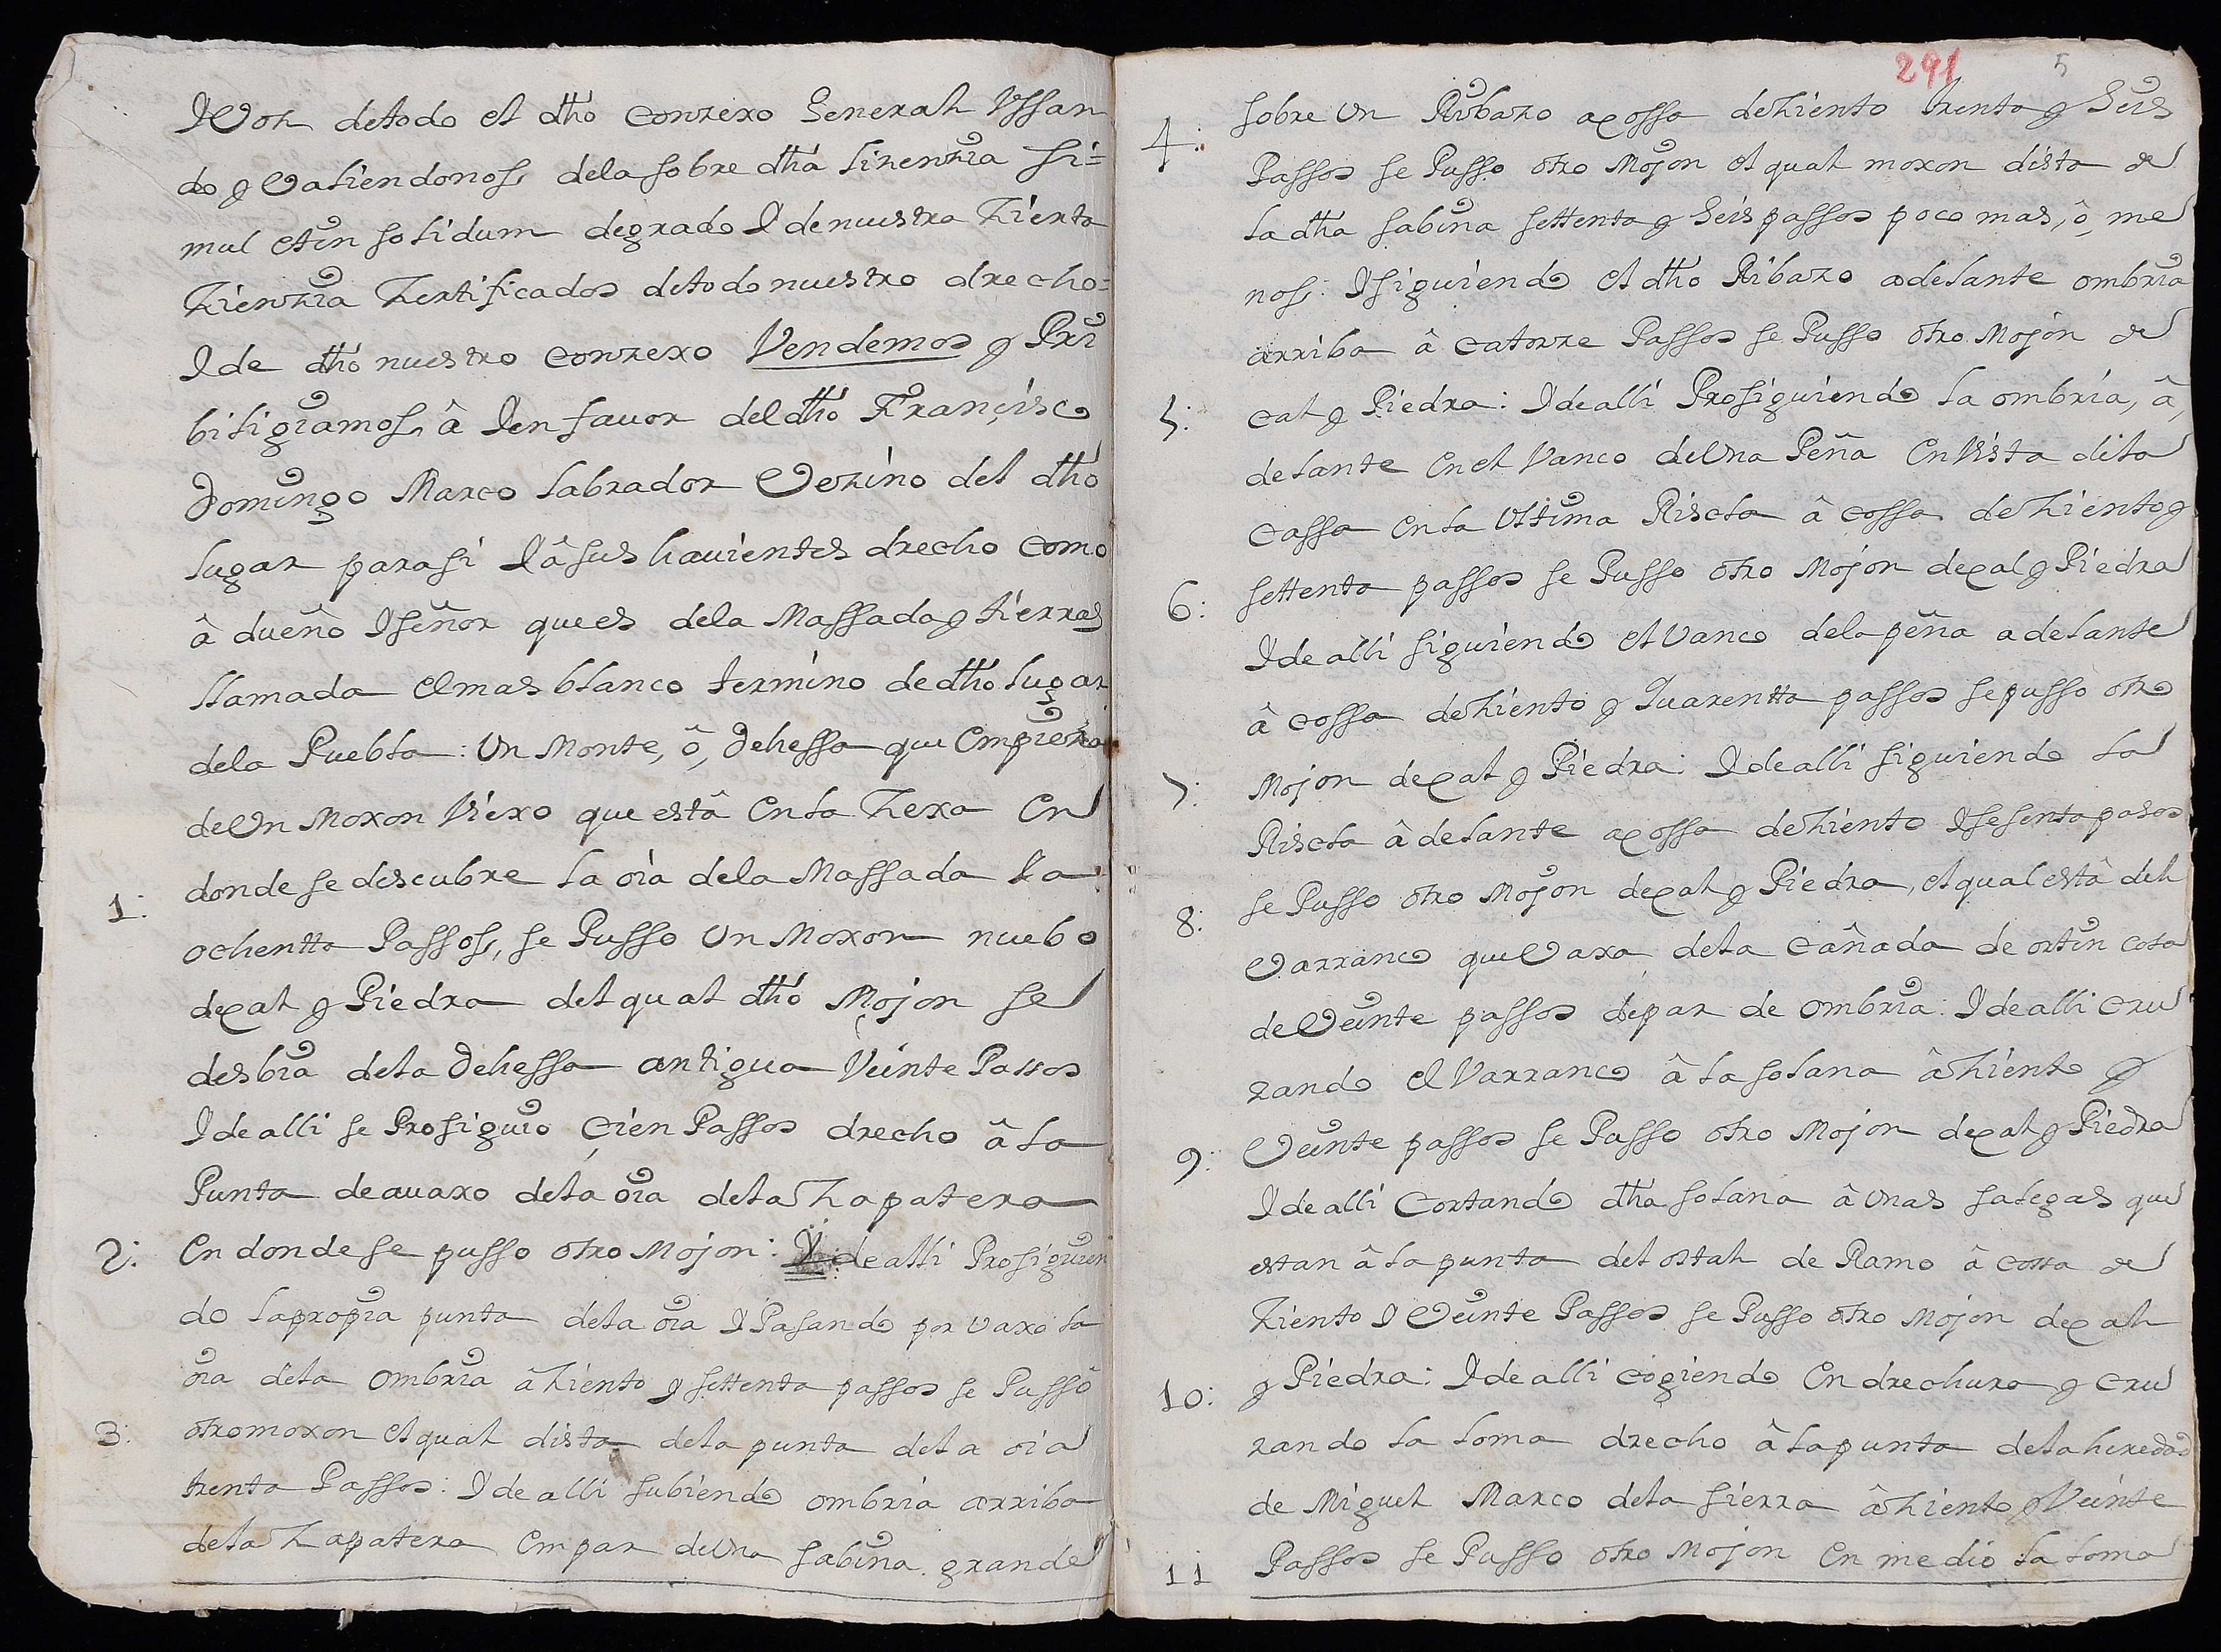 I Vor detodo el dho Conzexo General Vssan
do y Valiendonos, dela sobre dha Lizenzia si=
mul et in solidum de grado I de nuestra Zierta
Zienzia Zertificados detodo nuestro drecho=
I de dho nuestro Conzexo Vendemos y Pri
biligiamos, â I en favor del dho Françisco
Domingo Marco Labrador Vezino del dho
Lugar para si I â sus havientes drecho Como
â dueño I señor que es dela Massada y tierras
llamada el mas blanco termino de dho Lugar
dela Puebla: Un Monte, ô, Dehessa que Empieza
de Un Moxon Viexo que estâ En la Zexa En
donde se descubre la oia dela Massada I a
1: ochentta Passos, se Pusso Un Moxon nuebo
de cal y Piedra del qual dho Mojon se
desbia dela Dehessa antigua Veinte Passos
I de alli se Prosiguio Çien Passos drecho â la
Punta de avaxo dela oia dela Zapatera
2: En donde se pusso otro Mojon: Y de alli Prosiguien
do la propia punta dela oia I Pasando por vaxo la
oia dela Ombria â Ziento y settenta passos se Pusso
3: otro moxon el qual dista dela punta dela oia
trenta Passos: I de alli subiendo ombria arriba
dela Zapatera Em par de Una sabina grande
291 5
sobre Un Ribazo a cossa de Ziento trenta y Seis
4: Passos se Pusso otro Mojon el qual moxon dista de
la dha sabina settenta y Seis passos poco mas, ô, me
nos: I siguiendo el dho Ribazo adelante ombria
arriba â Catorze Passos se Pusso otro Mojon de
5: Cal y Piedra: I de alli Prosiguiendo la ombria, â,
delante En el Vanco de Una Peña En Vista dela
Cassa En la Ultima Riscla â cossa de Ziento y
6: settenta passos se Pusso otro Mojon de cal y Piedra
I de alli siguiendo el Vanco dela peña adelante
â cossa de Ziento y Quarentta passos se pusso otro
7: Mojon de cal y Piedra: I de alli siguiendo la
Riscla â delante a cossa de Ziento I sesenta pasos
8: se Pusso otro Mojon de cal y Piedra, el qual estâ del
Varranco que Vaxa dela Cañada de ortin cosa
de Veinte passos de par de Ombria: I de alli Cru
zando el Varranco â la solana â Ziento y
9: Veinte passos se Pusso otro Mojon de cal y Piedra
I de alli Cortando dha solana â Unas salegas que
estan â la punta del ostal de Ramo â cossa de
Ziento I Veinte Passos se Pusso otro Mojon de cal
10: y Piedra: I de alli cogiendo En drechura y Cru
zando la loma drecho â la punta dela heredad
de Miguel Marco dela Sierra â Ziento y Veinte
11 Passos se Pusso otro Mojon En medio la loma